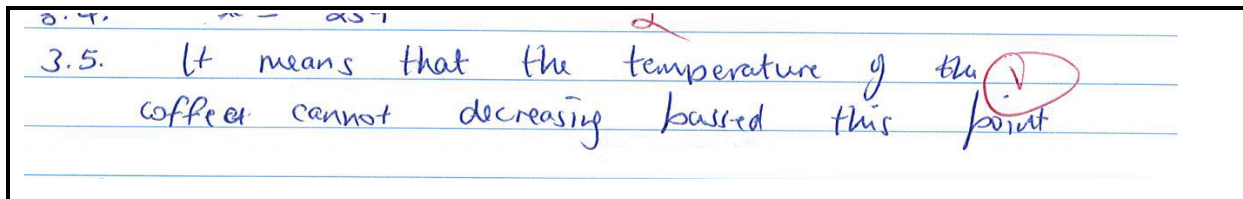 3.5. It means that the temperature of the
coffee cannot decreasing passed this point